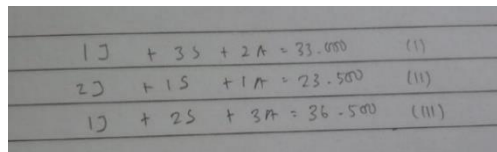 1J + 3S + 2A = 33.000 (I)
2J + 1S + 1A = 23.500 (II)
1J + 2S + 3A = 36.500 (III)